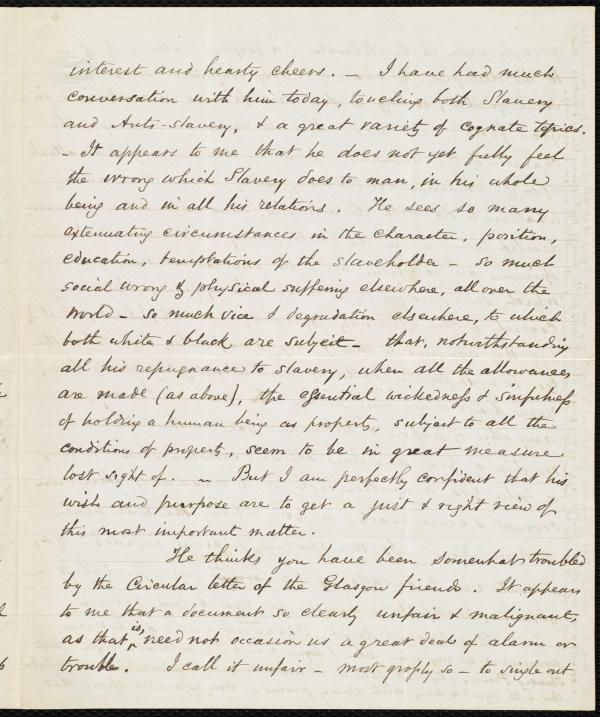 interest and hearty cheers. – I have had much
conversation with him today, touching both Slavery
and Anti-slavery, & a great variety of cognate topics.
– It appears to me that he does not yet fully feel
the wrong which Slavery does to man, in his whole
being and in all his relations. He sees so many
extenuating circumstances in the character, position,
education, temptations of the slaveholder – so much
social wrong & physical suffering elsewhere, all over the
world – so much vice & degradation elsewhere, to which
both white & black are subject – that, notwithstanding
all his repugnance to slavery, when all the allowances
are made (as above), the essential wickedness & sinfulness
of holding a human being as property, subject to all the
conditions of property, seem to be in great measure
lost sight of. – But I am perfectly confident that his
wish and purpose are to get a just & right view of
this most important matter.
He thinks you have been somewhat troubled
by the Circular letter of the Glasgow friends. It appears
to me that a document so clearly unfair & malignant,
as that is, need not occasion us a great deal of alarm or
trouble. I call it unfair – most grossly so – to single out